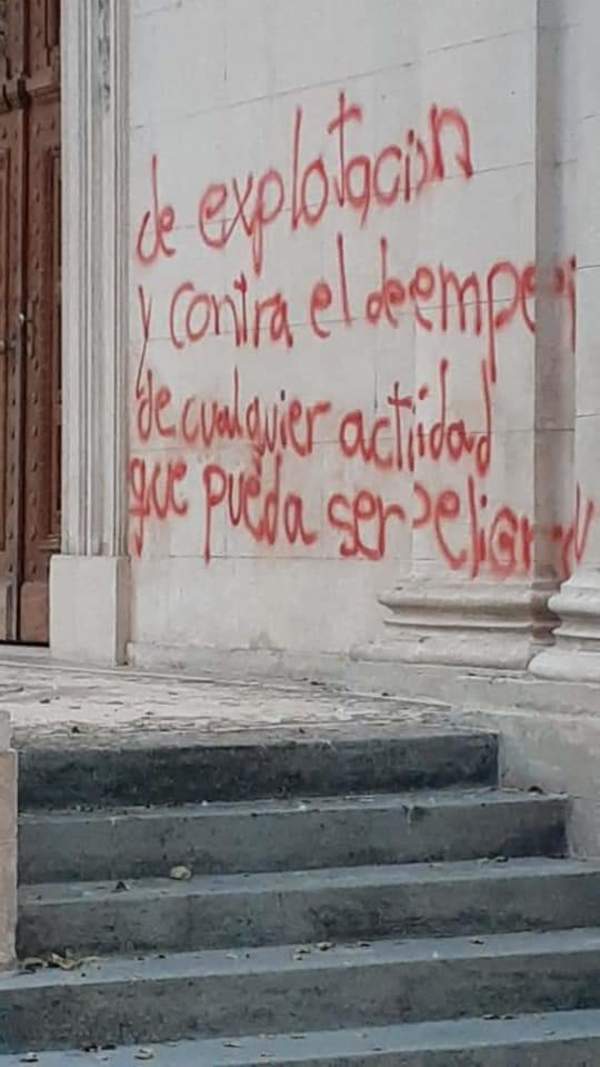 de explotación
y contra el deempeñ
de cualquier actiidad
que pueda ser peligro